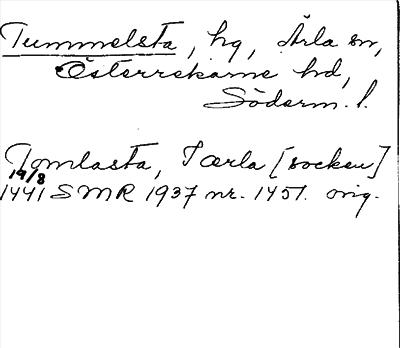 Tummelsta, hg, Ärla sn,
Österrekarne hd,
Söderm. l.
Tomlasta, I ærla [socken]
19/8
1441 SMR 1937 nr. 1451. orig.